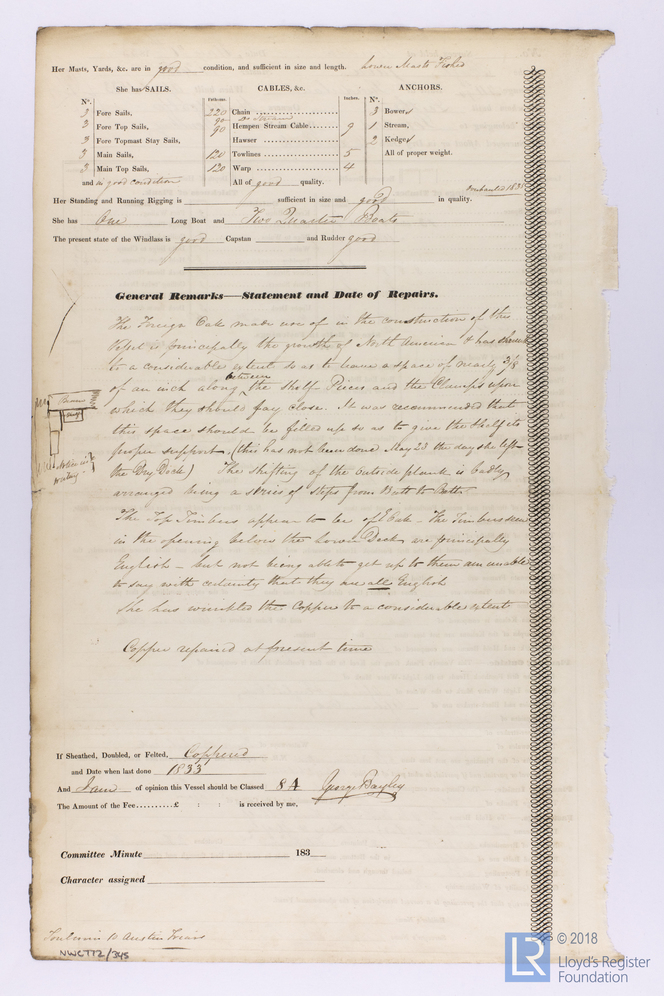 Her Masts, Yards, &c. are in good condition, and sufficient in size and length. Lower Masts Fished
She has SAILS. CABLES, &c. ANCHORS.
N°. Fathoms. Inches. N°.
3 Fore Sails, 220 Chain 3 Bowers
3 Fore Top Sails, 90 90 Hempen Stream Cable 9 1 Stream,
3 Fore Topmast Stay Sails, Hawser 2 Kedges
3 Main Sails, 120 Towlines 5 All of proper weight.
3 Main Top Sails, 120 Warp 4
and in good condition All of good quality.
Her Standing and Running Rigging is sufficient in size and good in quality.
She has One Long Boat and Two Quarter Boats
The present state of the Windlass is good Capstan and Rudder good
General Remarks—Statement and Date of Repairs.
The Foreign Oak made use of in the construction of this
Vessel is principally the growth of North American & has shrunk
to a considerable extent so as to leave a space of nearly 3/8
of an inch along between the Shelf Pieces and the Clamps upon
which they should fay close. It was recommended that
this space should be filled up so as to give the Shelf its
proper support. (this has not been done May 23 the day she left
the Dry Dock) The shifting of the outside plank is badly
arranged being a series of steps from Butt to Butt.
The Top Timbers appear to be of E Oak - The Timbers seen
in the opening below the Lower Deck are principally
English - but not being able to get up to them am unable
to say with certainty that they are all English
She has wrinkled the Copper to a considerable extent
Copper repaired at present time
Beam
If Sheathed, Doubled, or Felted, Coppered
and Date when last done 1833
And I am of opinion this Vessel should be Classed 8 A George Bayley
The Amount of the Fee..........£ : : is received by me,
Committee Minute 183
Character assigned
Austin Friars
NWCT12/345
LR © 2018
Lloyd's Register
Foundation